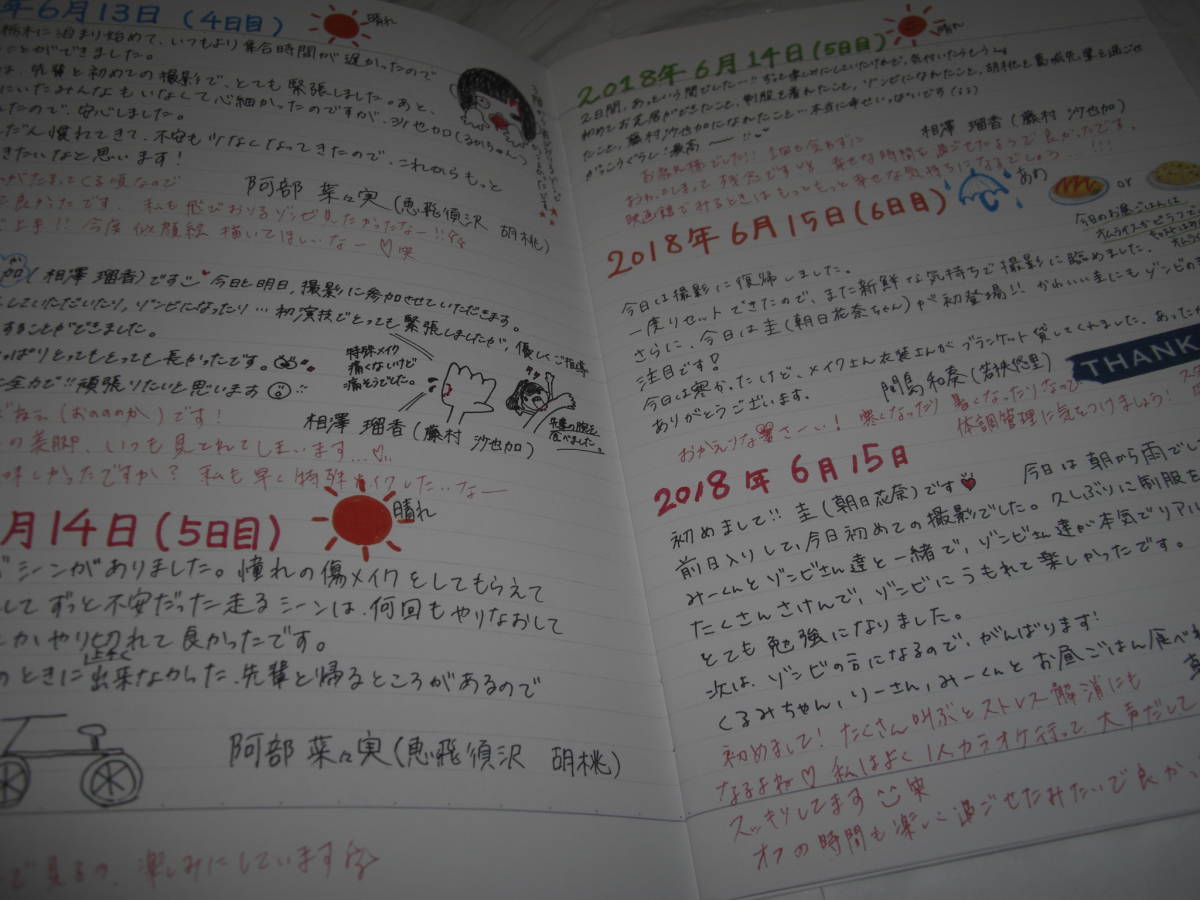 年6月13日（4日目）
晴れ
栃木に泊まり始めて、いつもより集合時間が遅かったので
ことができました。
は、先輩と初めての撮影で、とても緊張しました。あと、
にいたみんなもいなくて心細かったのですが、沙也加(るかちゃん)
たので、安心しました。
だん慣れてきて、不安も少なくなってきたので、これからもっと
きたいなと思います!
阿部 菜々実(恵飛須沢 胡桃)
がたまってくる頃なので
良かったです。私も飛びおりるゾンビ見たかったなー!!
上手!! 今度 似顔絵 描いてほしいなー♡笑
加(相澤 瑠香)です 今日と明日、撮影に参加させていただきます。
していただいたり、ゾンビになったり…初演技でとっても緊張しましたが、優しくご指導
することができました。
っぱりとってもとっても長かったです。
全力で!!頑張りたいと思います
特殊メイク
痛くないけど
痛そうでした。
先輩の腕を
食べました。
相澤 瑠香(藤村 沙也加)
(おののか)です!
の美脚、いつも見とれてしまいます…♡
味しかったですか? 私も早く特殊メイクしたいなー
月14日(5日目)
晴れ
シーンがありました。憧れの傷メイクをしてもらえて
してずっと不安だった走るシーンは、何回もやりなおして
とかやり切れて良かったです。
のときに上手く出来なかった、先輩と帰るところがあるので
阿部 菜々実(恵飛須沢 胡桃)
で見るの、楽しみにしています
2018年6月14日(5日目)
晴れ
2日間、あっという間でした…
初めてお芝居ができたこと、制服を着れたこと、ゾンビになれたこと、胡桃と葛城先輩と過ごせ
たこと、藤村沙也加になれたこと…本当に幸せいっぱいです
がっこうぐらし!最高〜!!
相澤 瑠香(藤村 沙也加)
お疲れ様でした!!
幸せな時間を過ごせたようで良かったです。
映画館でみるときはもっともっと幸せな気持ちになるでしょう…!!!
2018年6月15日(6日目)
あめ
or
今日のお昼ごはんは
オムライスかピラフ
今日は撮影に復帰しました。
一度リセットできたので、また新鮮な気持ちで撮影に臨めました。
さらに、今日は圭(朝日花奈ちゃん)が初登場!! かわいい圭にもゾンビの
注目です!
今日は寒かったけど、メイクさん衣装さんがブランケット貸してくれました、あったか
ありがとうございます。
間島和奏(若狭悠里)
THANK
おかえりな暑さーい! 寒くなったり暑くなったりなので
体調管理に気をつけましょう!
2018年6月15日
初めまして!! 圭(朝日花奈)です♥ 今日は朝から雨でし
前日入りして、今日初めての撮影でした。久しぶりに制服を
みーくんとゾンビさん達と一緒で、ゾンビさん達が本気でリアル
たくさんさけんで、ゾンビにうもれて楽しかったです。
とても勉強になりました。
次は、ゾンビの方になるので、がんばります!
くるみちゃん、りーさん、みーくんとお昼ごはん食べ
初めまして! たくさん叫ぶとストレス解消にも
なるよね♡ 私はよく1人カラオケ行って、大声だして
スッキリしてます 笑
オフの時間も楽しく過ごせたみたいで良か